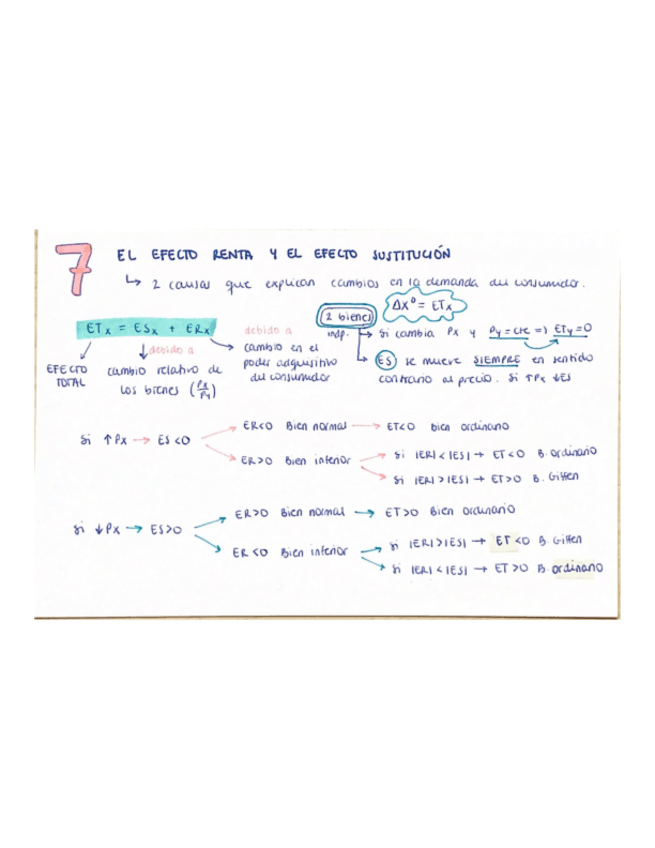 7 EL EFECTO RENTA Y EL EFECTO SUSTITUCIÓN
↳ 2 causas que explican cambios en la demanda del consumidor.
ETx = ESx + ERx
EFECTO TOTAL
debido a
cambio relativo de
los bienes (Px/Py)
debido a
cambio en el
poder adquisitivo
del consumidor
2 bienes
indp.
ΔxD = ETx
si cambia Px y Py = cte => ETy = 0
ES se mueve SIEMPRE en sentido
contrario al precio. Si ↑Px ↓ES
Si ↑Px → ES <0
ER<0 Bien normal → ET<0 Bien ordinario
ER>0 Bien inferior
si |ER| < |ES| → ET <0 B. ordinario
si |ER| > |ES| → ET>0 B. Giffen
Si ↓Px → ES>0
ER>0 Bien normal → ET>0 Bien ordinario
ER <0 Bien inferior
si |ER| > |ES| → ET <0 B. Giffen
si |ER| < |ES| → ET >0 B. ordinario